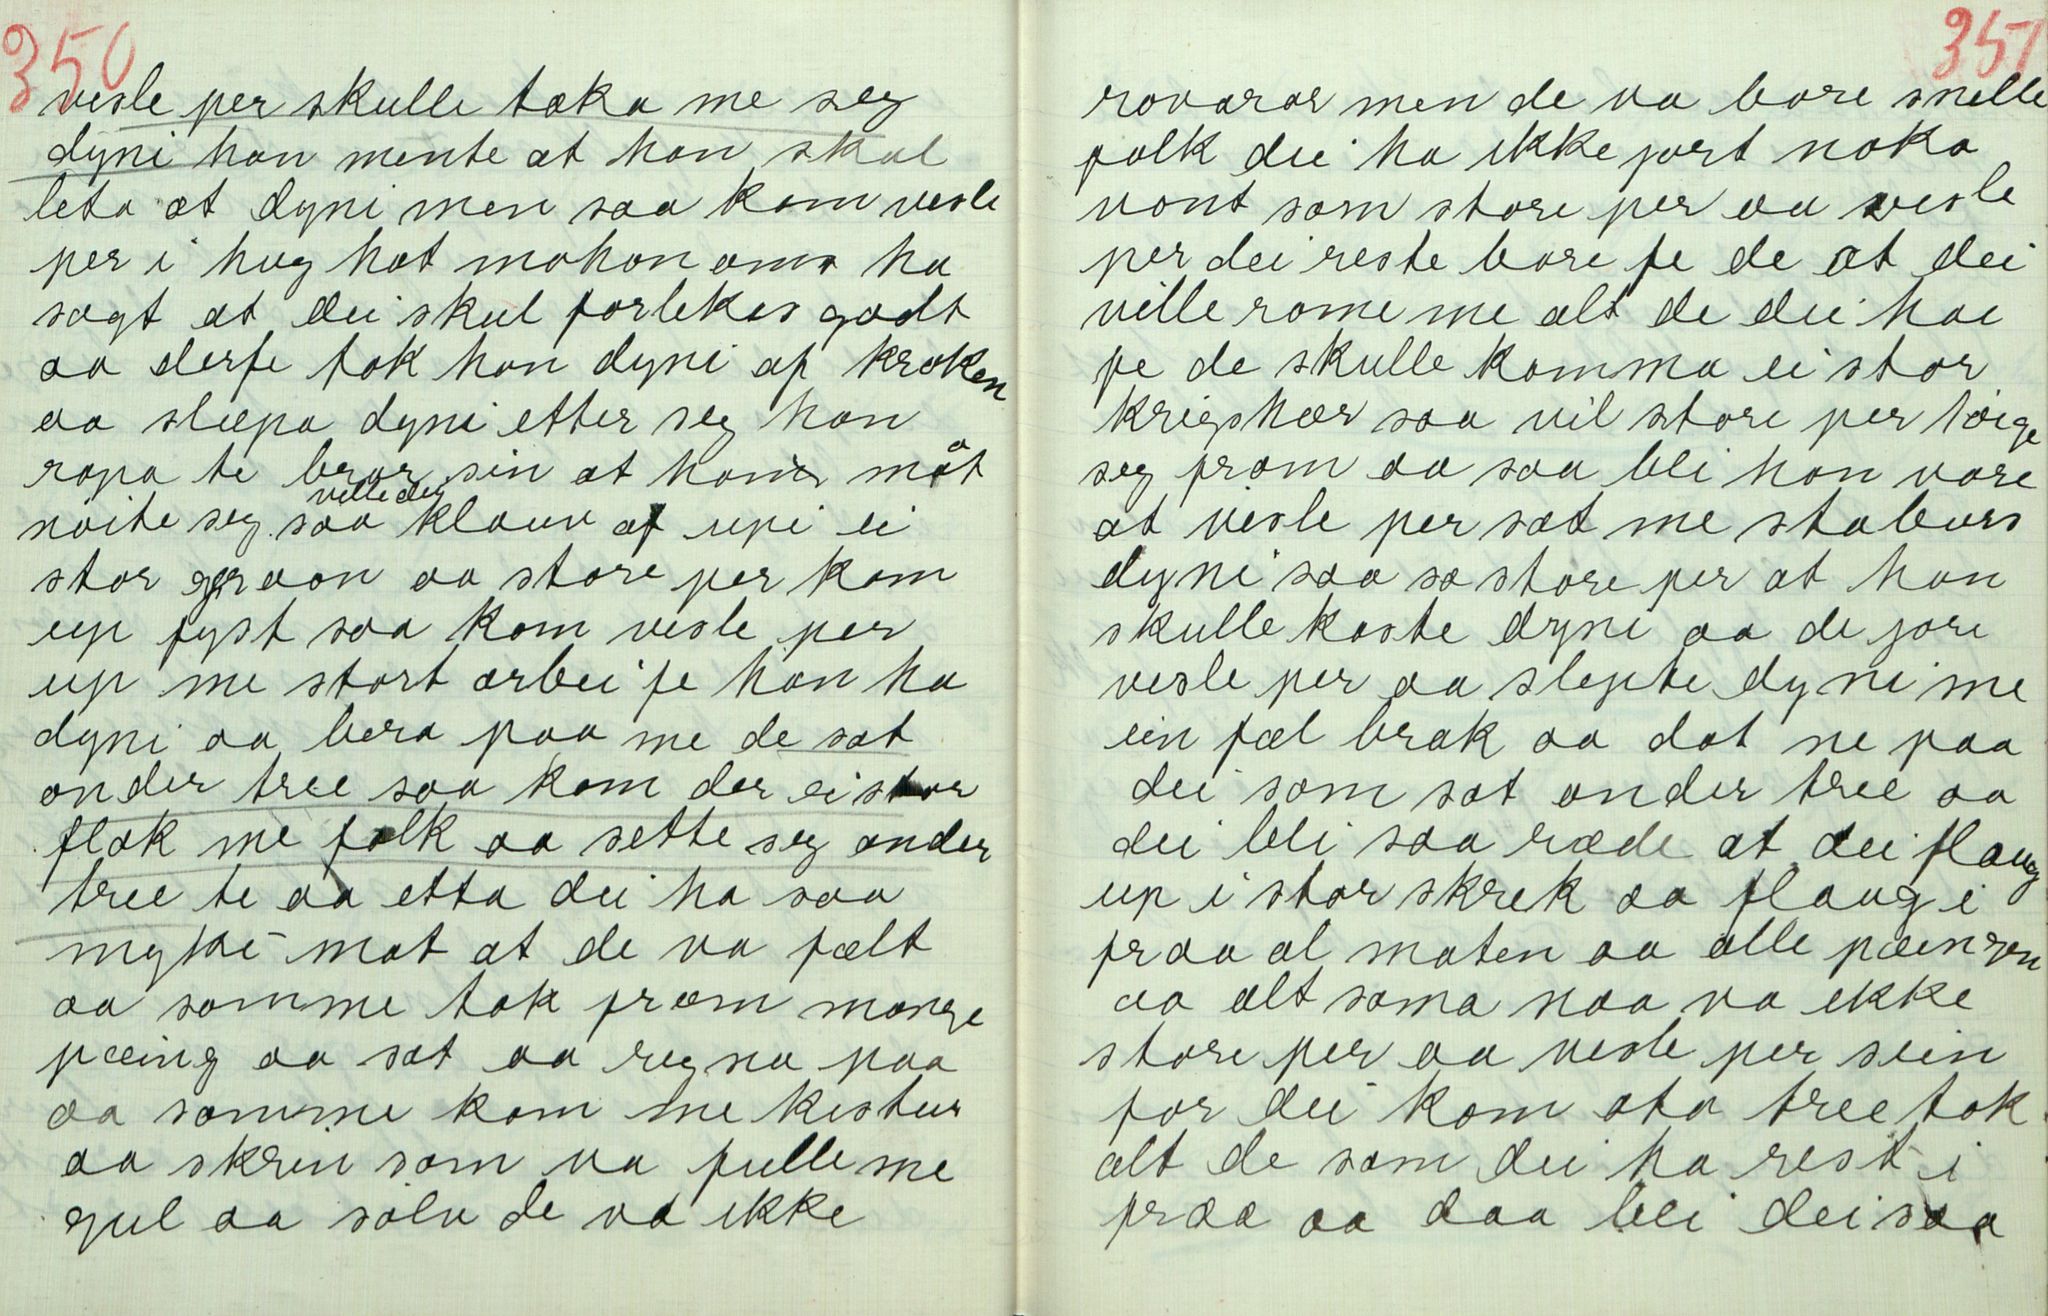 350
vesle per skulle taka me seg
dyni han mente at han skul
leta at dyni men saa kom vesle
per i hug hat mohonoms ha
sagt at dei skul forlekes godt
aa derfe tok han dyni af kroken
aa slæpa dyni etter seg han
ropa te bror sin at hans måt
nöite seg saa klauv af upi ei
ville dei
stor graon aa store per kom
up fyst saa kom vesle per
up me stort arbei fe han ha
dyni aa bera paa me de sat
onder tree saa kom der ei stor
flok me folk aa sette seg onder
tree te aa etta dei ha saa
mykje mat at de va fælt
aa somme tok fræm mange
pæing aa sat aa regna paa
aa somme kom me kistur
aa skrin som va fulle me
gul aa sölv de va ikke
351
rovarar men de va bare snelle
folk dei ha ikke jort noka
vont som store per aa vesle
per dei reste bare fe de at dei
ville rome me alt de dei hae
fe de skulle komma ei stor
krigshær saa vil store per löige
seg fræm aa saa blei han vare
at vesle per sat me staburs
dyni saa sa store per at han
skulle kaste dyni aa de jore
vesle per aa slepte dyni me
ein fæl brak aa dat ne paa
dei som sat onder tree aa
dei blei saa ræde at dei flaug
up i stor skrek aa flaug i
fraa al maten aa alle pæingen
aa alt sama naa va ikke
store per aa vesle per sein
for dei kom ata tree tok
alt de som dei ha rest i
fraa aa daa blei dei saa